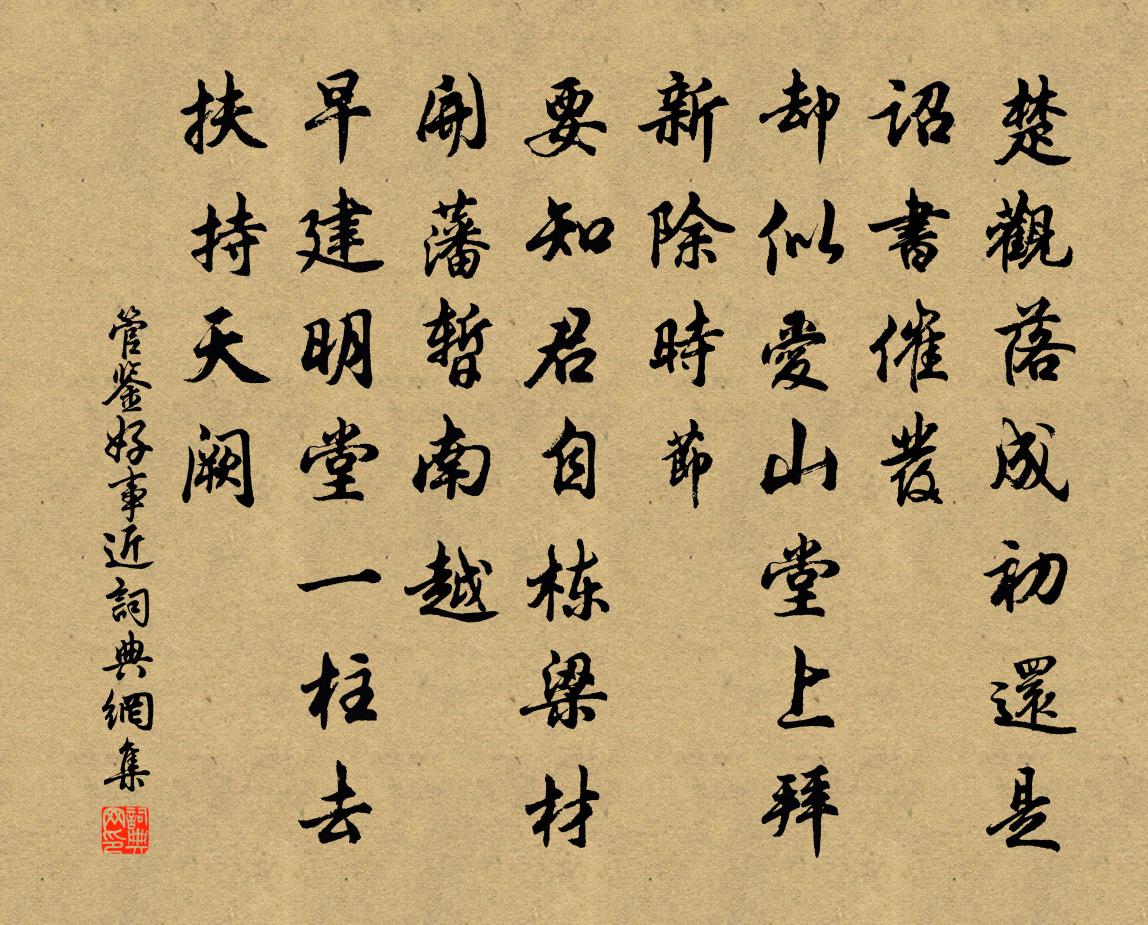 楚觀落成初還是
詔書催發
却似愛山堂上拜
新除時節
要知君自栋梁材
開藩暫南越
早建明堂一柱去
扶持天闕
管鉴好事近詞典網集
詞典网印